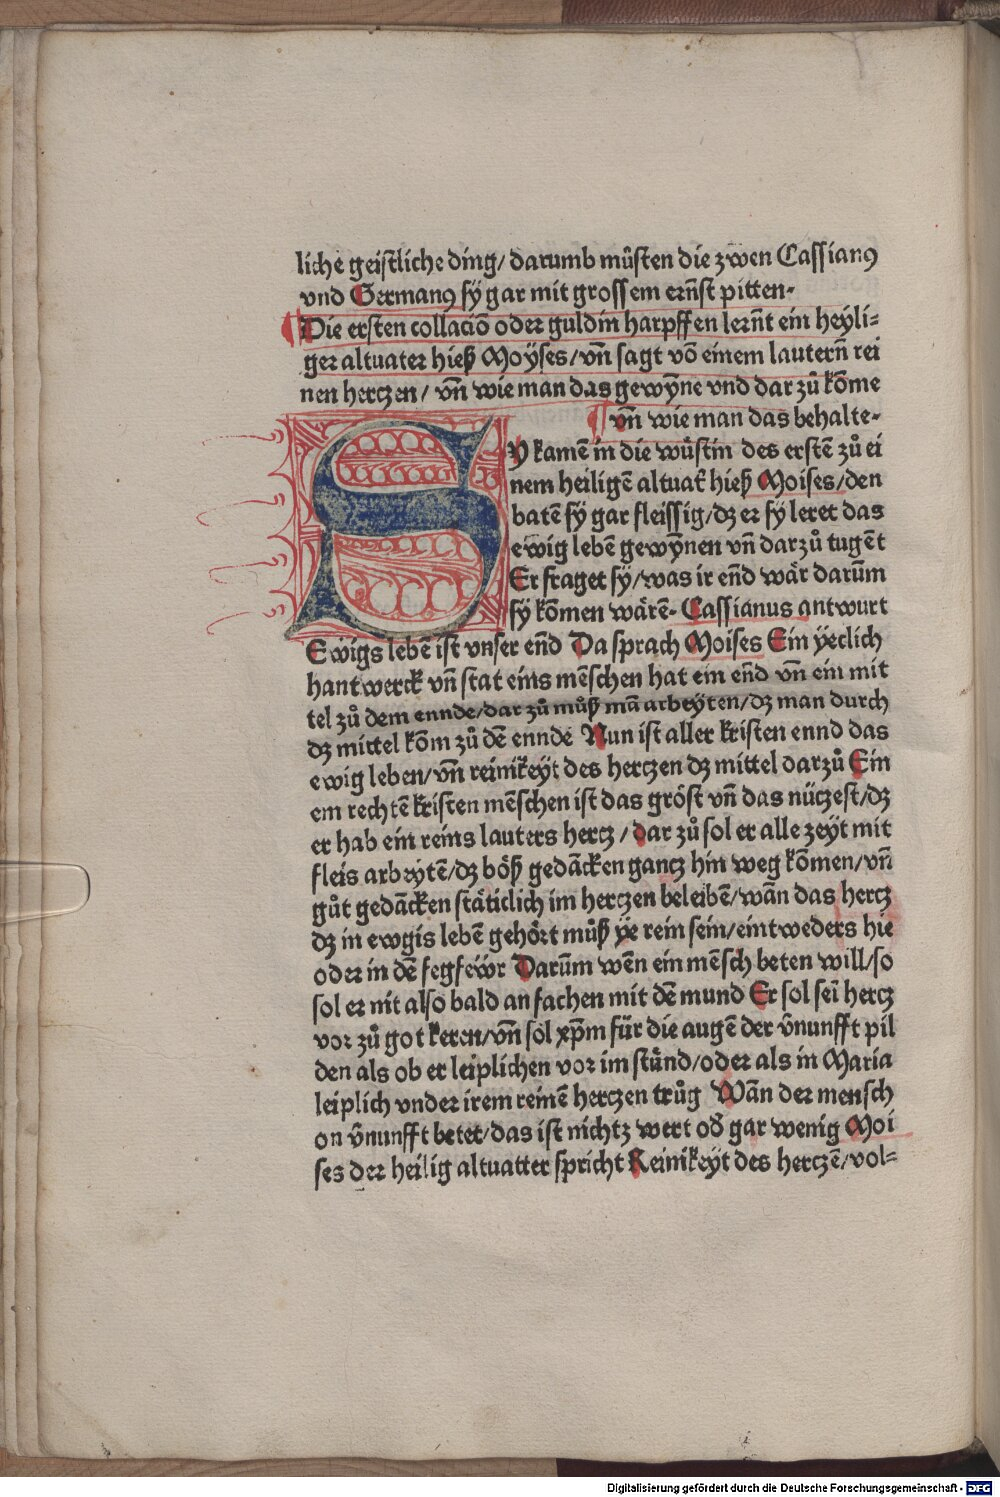 liche geistliche ding/ darumb müsten die zwen Cassianꝰ
vnd Germanꝰ sÿ gar mit grossem ern̄st pitten.
¶ Die ersten collaciō oder guldin harpffen lern̄t ein heyli⸗
ger altuater hieß Moÿses/ vn̄ sagt vō einem lautern̄ rei
nen hertzen/ vn̄ wie man das gewȳne vnd dar zů kōme
¶ vn̄ wie man das behalte.
SY kamē in die wüstin des erstē zů ei
nem heiligē altuat̄ hieß Moises/ den
batē sÿ gar fleissig/ dz er sÿ leret das
ewig lebē gewȳnen vn̄ darzů tugēt
Er fraget sÿ/ was ir en̄d wär darūm
sÿ kōmen wärē. Cassianus antwurt
Ewigs lebē ist vnser en̄d Da sprach Moises Ein ÿeclich
hantwerck vn̄ stat eins mēschen hat ein en̄d vn̄ ein mit
tel zů dem ennde/ dar zů můß mā arbeÿten/ dz man durch
dz mittel kōm zů dē ennde Nun ist aller kristen ennd das
ewig leben/ vn̄ reinikeÿt des hertzen dz mittel darzů Ein
em rechtē kristen mēschen ist das gröst vn̄ das nützest/ dz
er hab ein reins lauters hertz / dar zů sol er alle zeÿt mit
fleis arbeÿtē/ dz böß gedācken gantz hin weg kōmen/ vn̄
gůt gedācken stäticlich im hertzen beleibē/ wān das hertz
dz in ewgis lebē gehört můß ÿe rein sein/ eintweders hie
oder in dē fegfeẅr Darūm wēn ein mēsch beten will/ so
sol er nit also bald anfachen mit dē mund Er sol seī hertz
vor zů got keren/ vn̄ sol xp̄m für die augē der v̄nunfft pil
den als ob er leiplichen vor im stünd/ oder als in Maria
leiplich vnder irem reinē hertzen trůg Wān der mensch
on v̄nunfft betet/ das ist nichtz wert od̄ gar wenig Moi
ses der heilig altuatter spricht Reinikeÿt des hertzē/ vol⸗
Digitalisierung gefördert durch die Deutsche Forschungsgemeinschaft - DFG